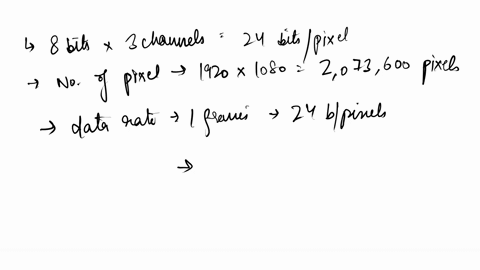 ↳ 8 bits × 3 channels = 24 bits/pixel
→ No. of pixel → 1920 × 1080 = 2,073,600 pixels
→ data rate → 1 frame → 24 b/pixels
→